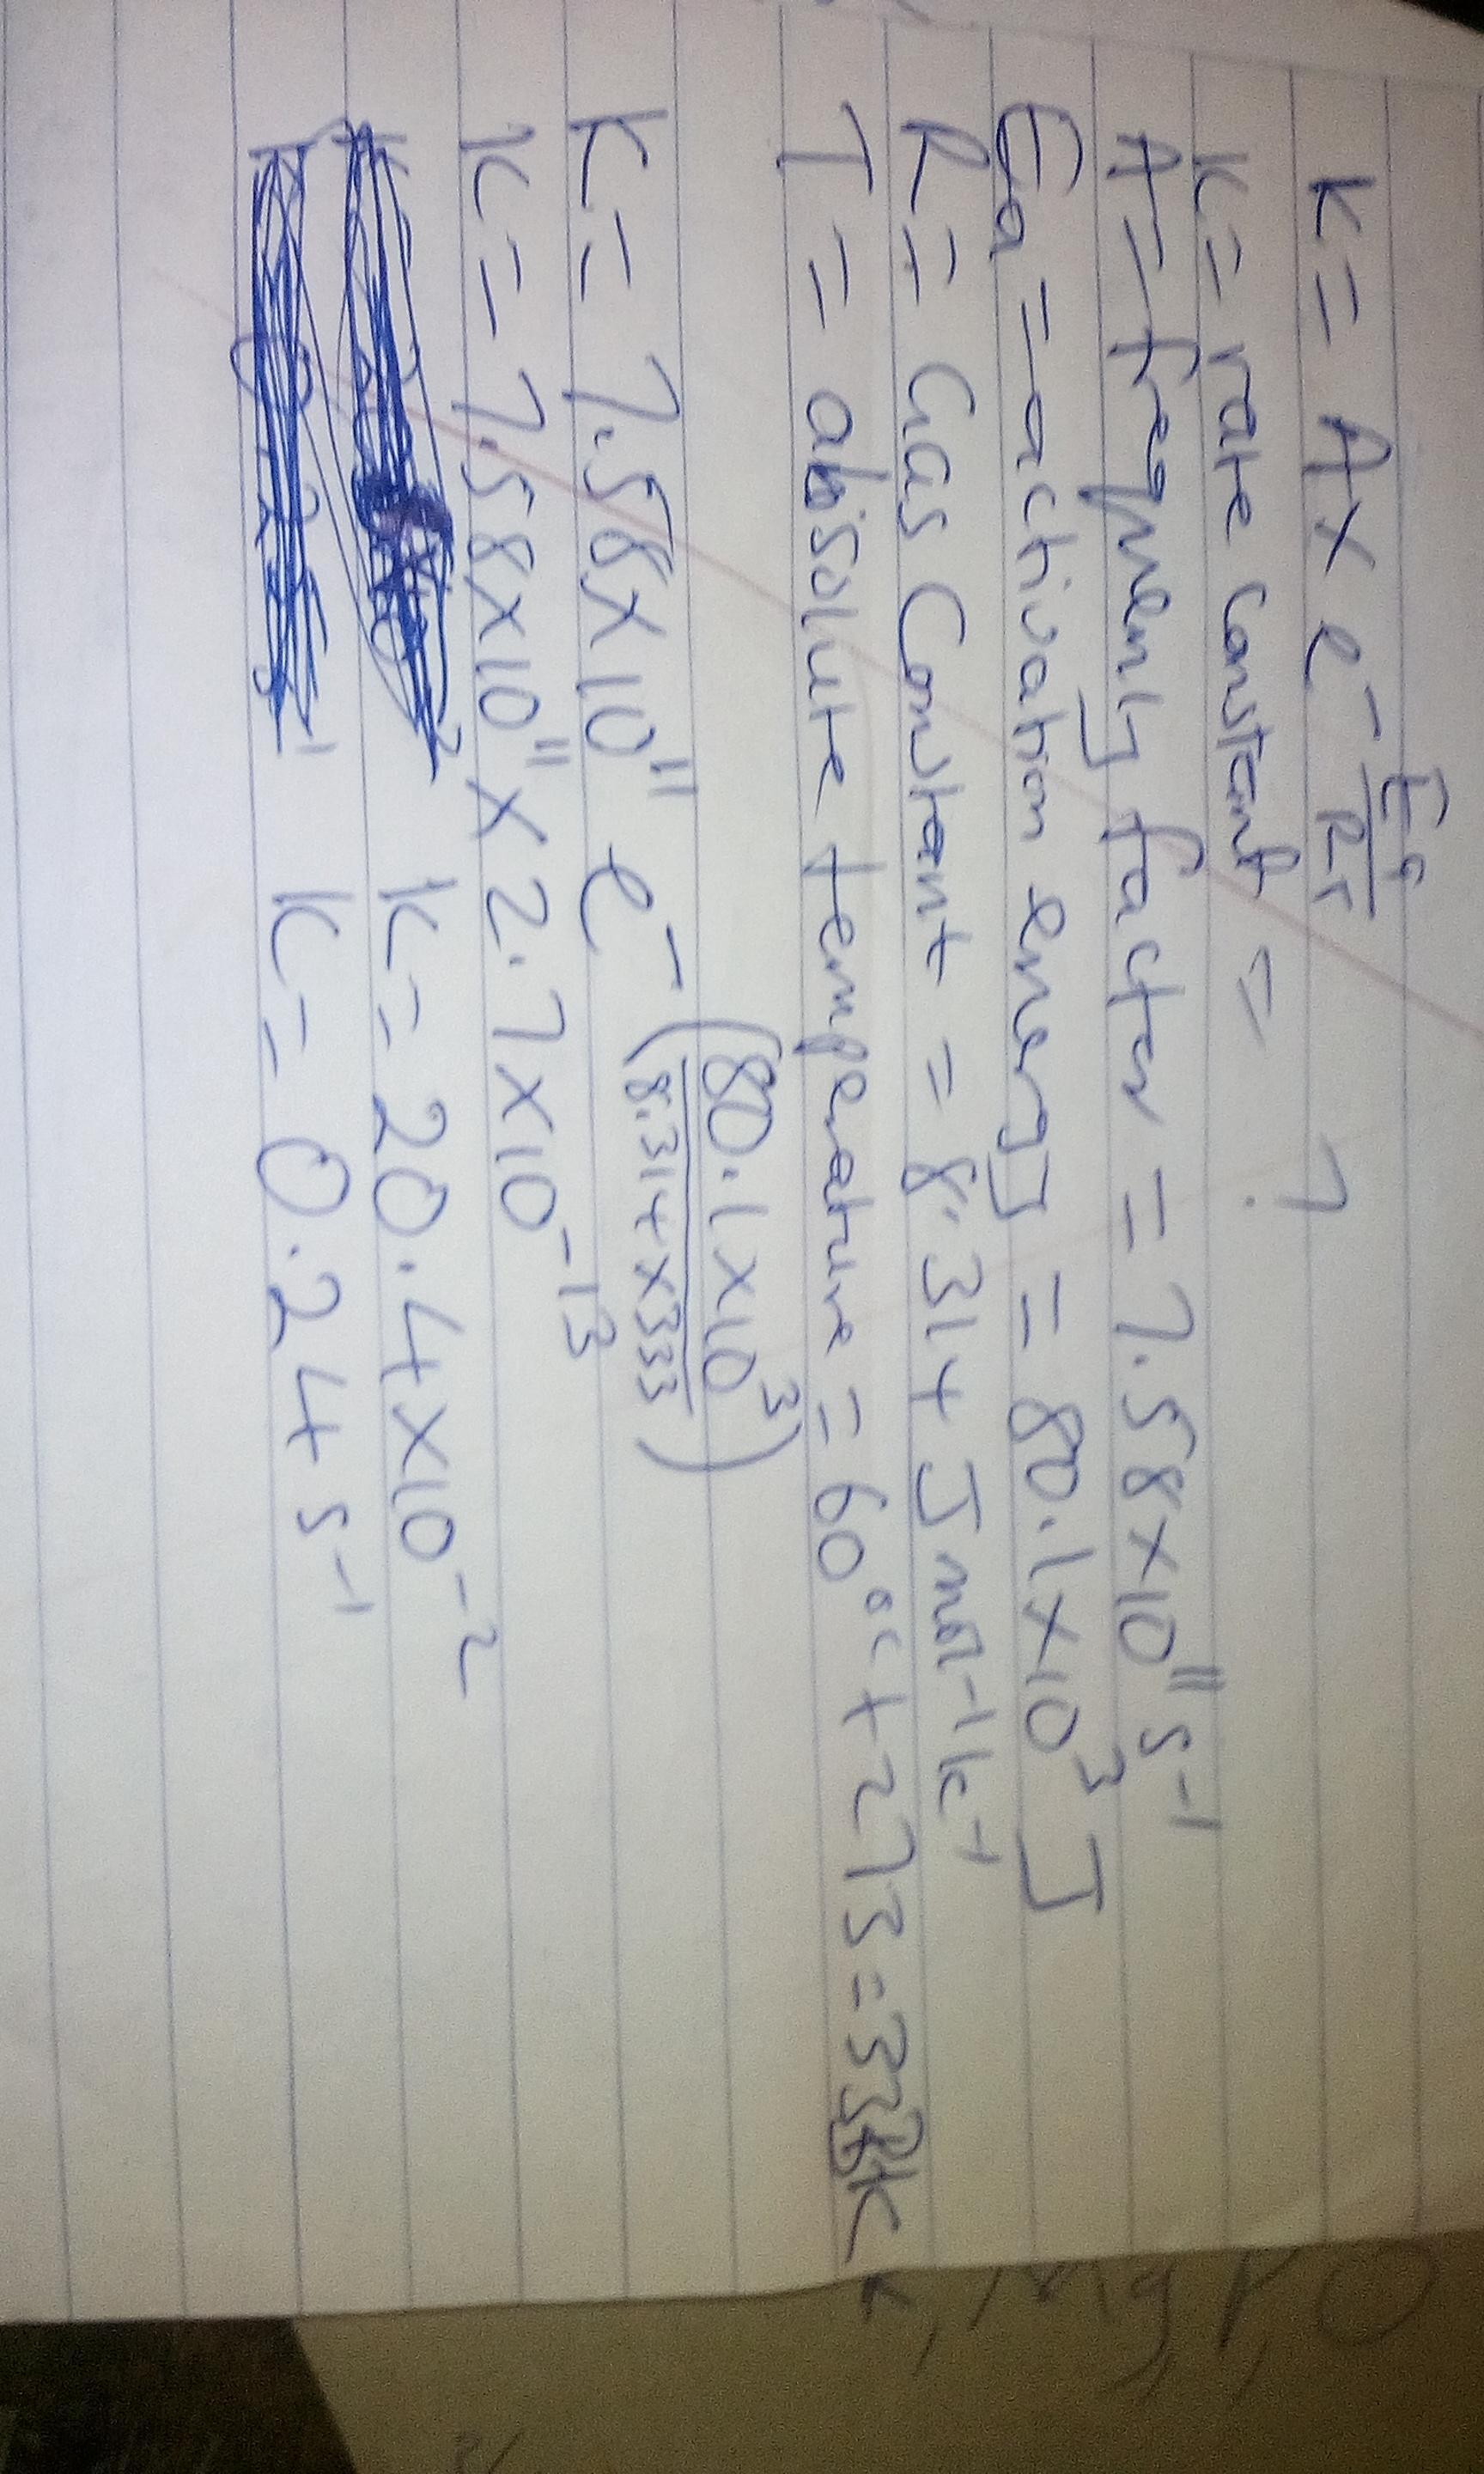 K = A x e^-Ea/RT
K = rate constant = ?
A = frequency factor = 7.58 x 10^11 s^-1
Ea = activation energy = 80.1 x 10^3 J
R = Gas Constant = 8.314 J mol^-1 K^-1
T = absolute temperature = 60°C + 273 = 333K
K = 7.58 x 10^11 e^-(80.1 x 10^3 / 8.314 x 333)
K = 7.58 x 10^11 x 2.7 x 10^-13
K = 20.4 x 10^-2
K = 0.24 s^-1